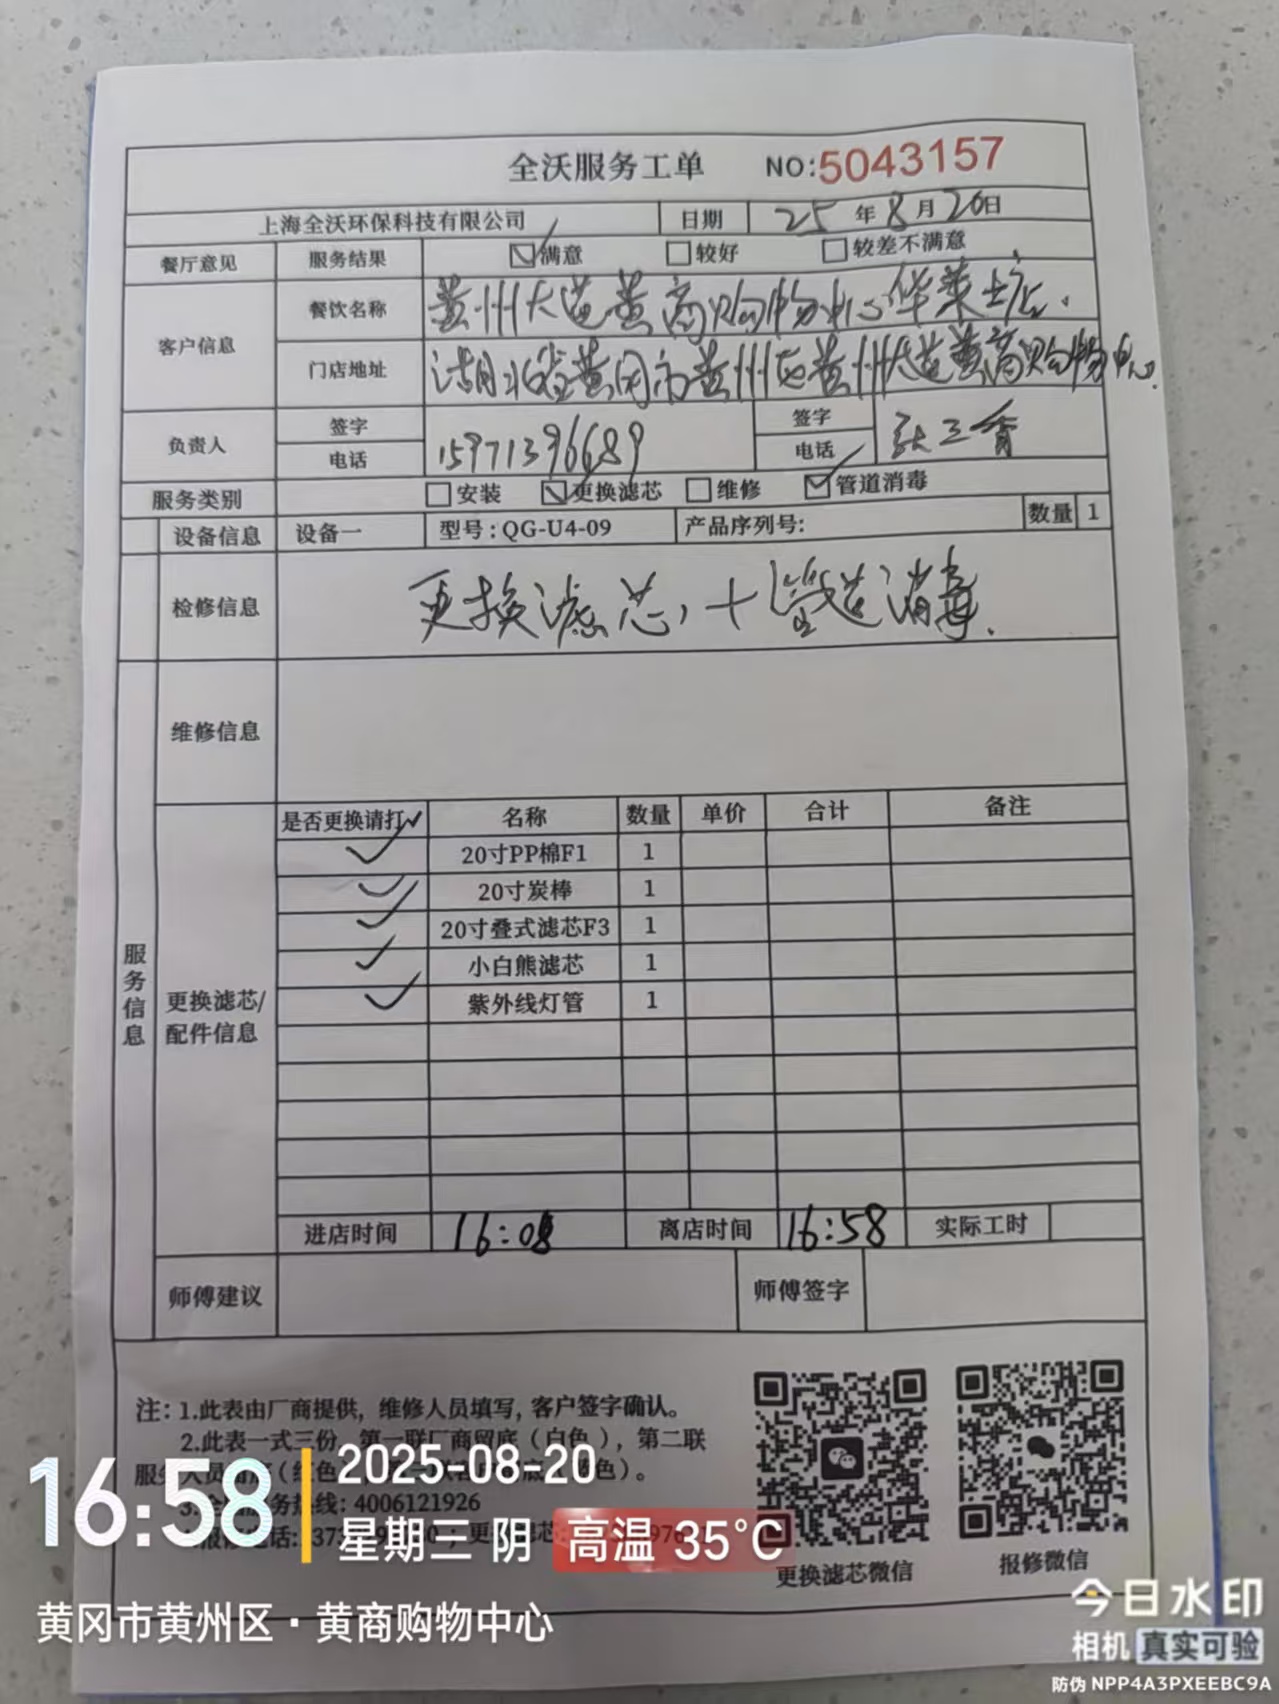 全沃服务工单 NO:5043157
上海全沃环保科技有限公司 日期 25年8月20日
餐厅意见 服务结果 ☑满意 □较好 □较差不满意
客户信息 餐饮名称 黄州大道黄商购物中心华莱士店.
门店地址 湖北省黄冈市黄州区黄州大道黄商购物中心.
负责人 签字 电话 15971396689 签字 电话 张三香
服务类别 □安装 ☑更换滤芯 □维修 ☑管道消毒
设备信息 设备一 型号:QG-U4-09 产品序列号: 数量 1
检修信息 更换滤芯,十管道消毒.
维修信息
服务信息
更换滤芯/配件信息
是否更换请打✓ 名称 数量 单价 合计 备注
✓ 20寸PP棉F1 1
✓ 20寸炭棒 1
✓ 20寸叠式滤芯F3 1
✓ 小白熊滤芯 1
✓ 紫外线灯管 1
进店时间 16:08 离店时间 16:58 实际工时
师傅建议 师傅签字
注: 1.此表由厂商提供, 维修人员填写, 客户签字确认。
2.此表一式三份, 第一联厂商留底(白色), 第二联
服务人员留底
务热线: 4006121926
更换滤芯微信 报修微信
16:58 2025-08-20
星期三 阴 高温 35°C
黄冈市黄州区·黄商购物中心
今日水印
相机 真实可验
防伪 NPP4A3PXEEBC9A